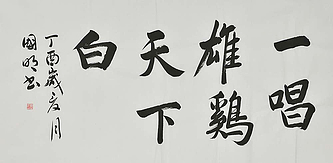 一唱
雄鷄
天下
白
丁酉歲夏月
國明書